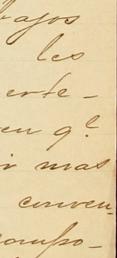 bajos
les
erte-
en q.e
ir mas
conven-
compo-